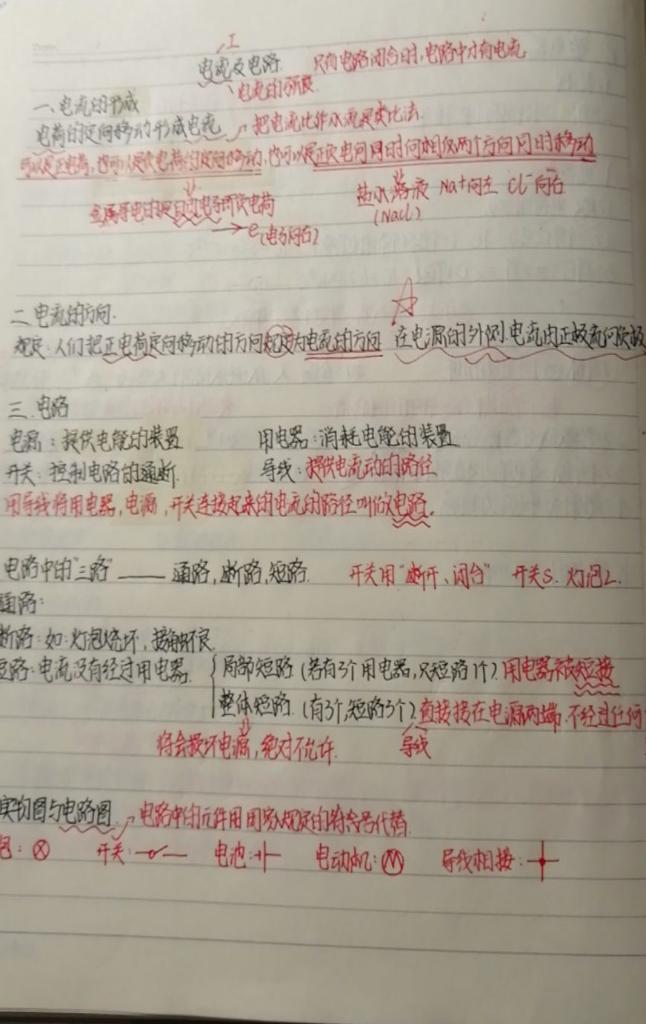 I
电流及电路 只有电路闭合时,电路中才有电流
电流的所及
一、电流的形成
电荷的定向移动形成电流 把电流比作水流是类比法
可以是正电荷,也可以是负电荷的定向移动,也可以是正负电荷同时向相反两个方向同时移动
金属导电的是自由电子所谓负电荷 盐水溶液 Na+向左 Cl-向右
e(电子向右) (NaCl)
二 电流的方向.
规定:人们把正电荷定向移动的方向规定为电流的方向 在电源的外侧,电流由正极流向负极
三、电路
电源:提供电能的装置 用电器:消耗电能的装置
开关:控制电路的通断. 导线:提供电流动的路径
用导线将用电器,电源,开关连接起来的电流的路径叫做电路。
电路中的"三路"——通路,断路,短路. 开关用"断开、闭合" 开关S. 灯泡L.
通路:
断路:如:灯泡烧坏,接触不良.
短路:电流没有经过用电器. 局部短路.(若有3个用电器,只短路1个).用电器未被短接
整体短路.(有3个,短路3个).直接接在电源两端,不经过任何
将会损坏电源,绝对不允许. 导线
实物图与电路图. 电路中的元件用国家规定的符号代替.
泡: 开关: 电池: 电动机:M 导线相接: